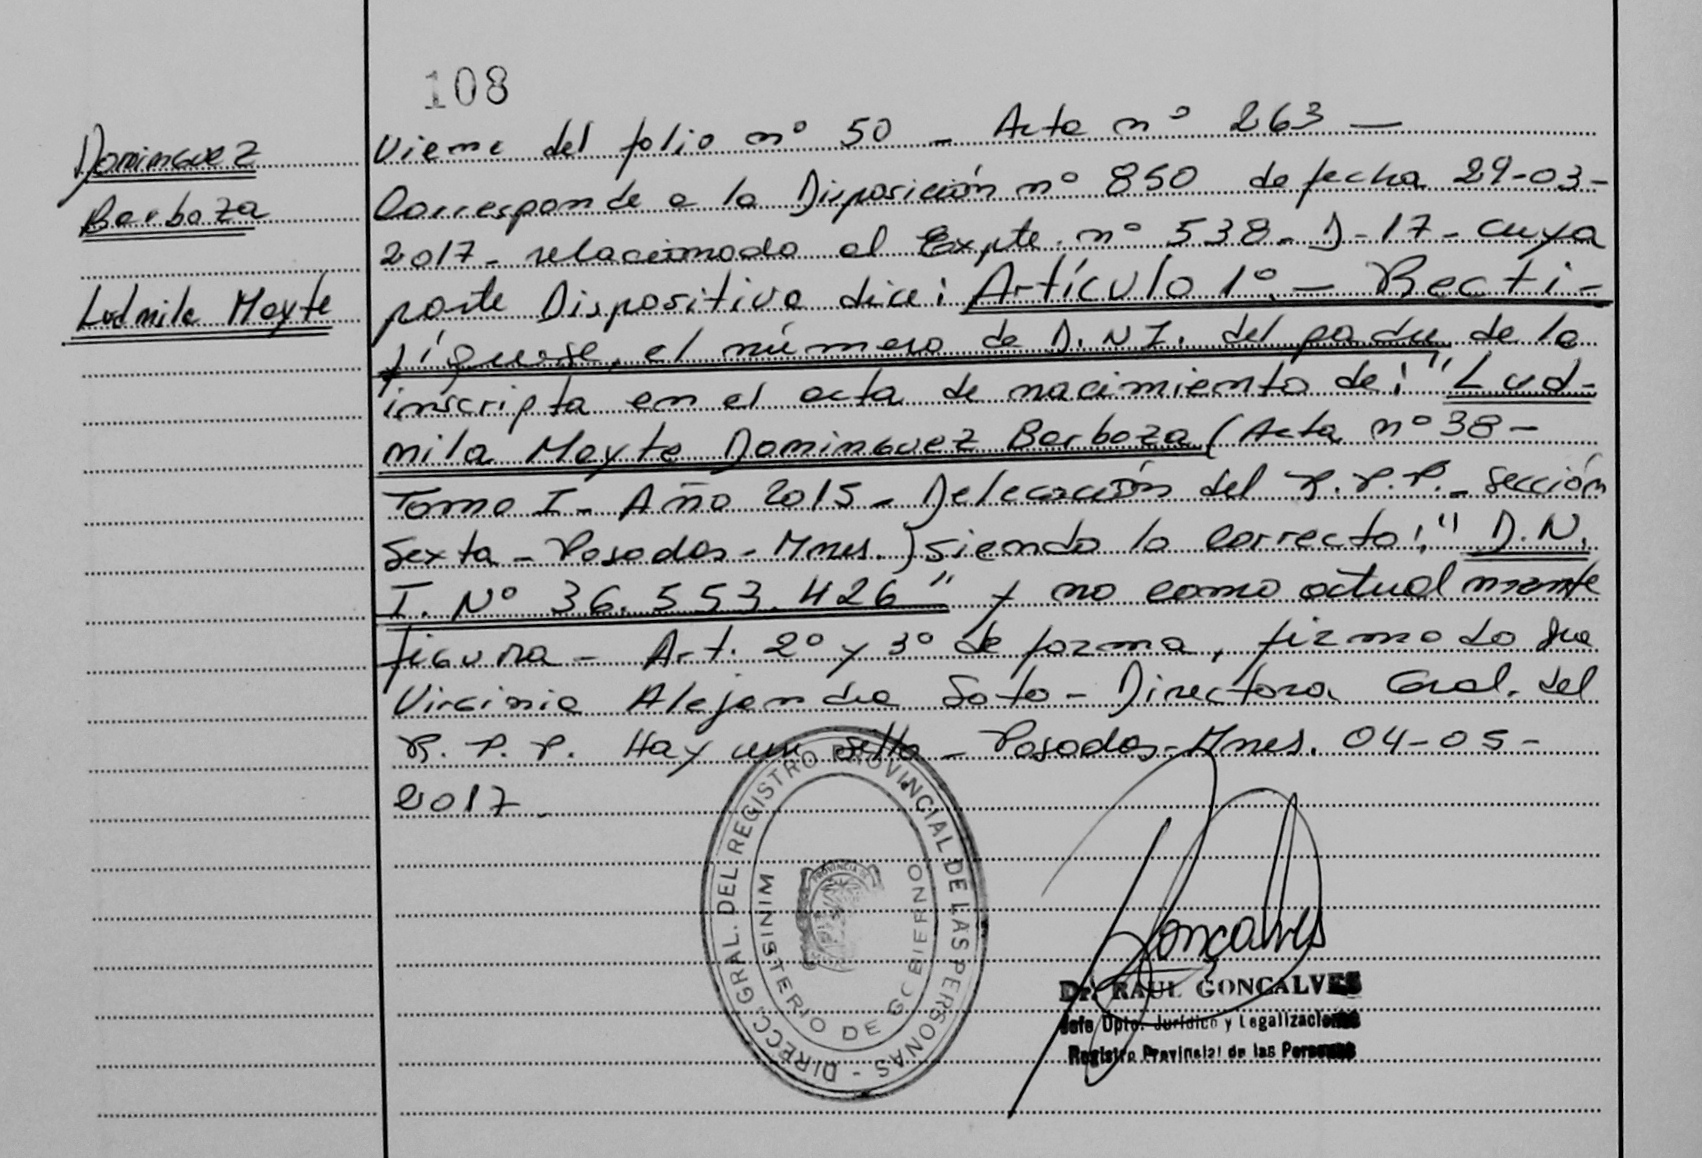 108
Dominguez
Barboza
Ludmila Mayte
Viene del folio nº 50 - Acta nº 263 -
Corresponde a la Disposición nº 850 de fecha 29-03-
2017 - relacionado al Expte. nº 538 - D - 17 - cuya
parte Dispositiva dice: Artículo 1º - Recti-
fíquese, el número de D.N.I. del padre de la
inscripta en el acta de nacimiento de: "Lud-
mila Mayte Dominguez Barboza (Acta nº 38 -
Tomo I - Año 2015 - Delegación del R.P.P. - Sección
Sexta - Posadas - Mnes.) siendo lo correcto: "D.N.
I. Nº 36.553.426" y no como actualmente
figura - Art. 2º y 3º de forma, firmado
Virginia Alejandra Soto - Directora Gral. del
R.P.P. Hay un sello - Posadas - Mnes. 04-05-
2017.
DIRECC. GRAL. DEL REGISTRO PROVINCIAL DE LAS PERSONAS -
MINISTERIO DE GOBIERNO
PROVINCIA DE
Gonçalves
Dr. RAUL GONCALVES
Jefe Dpto. Jurídico y Legalizaciones
Registro Provincial de las Personas